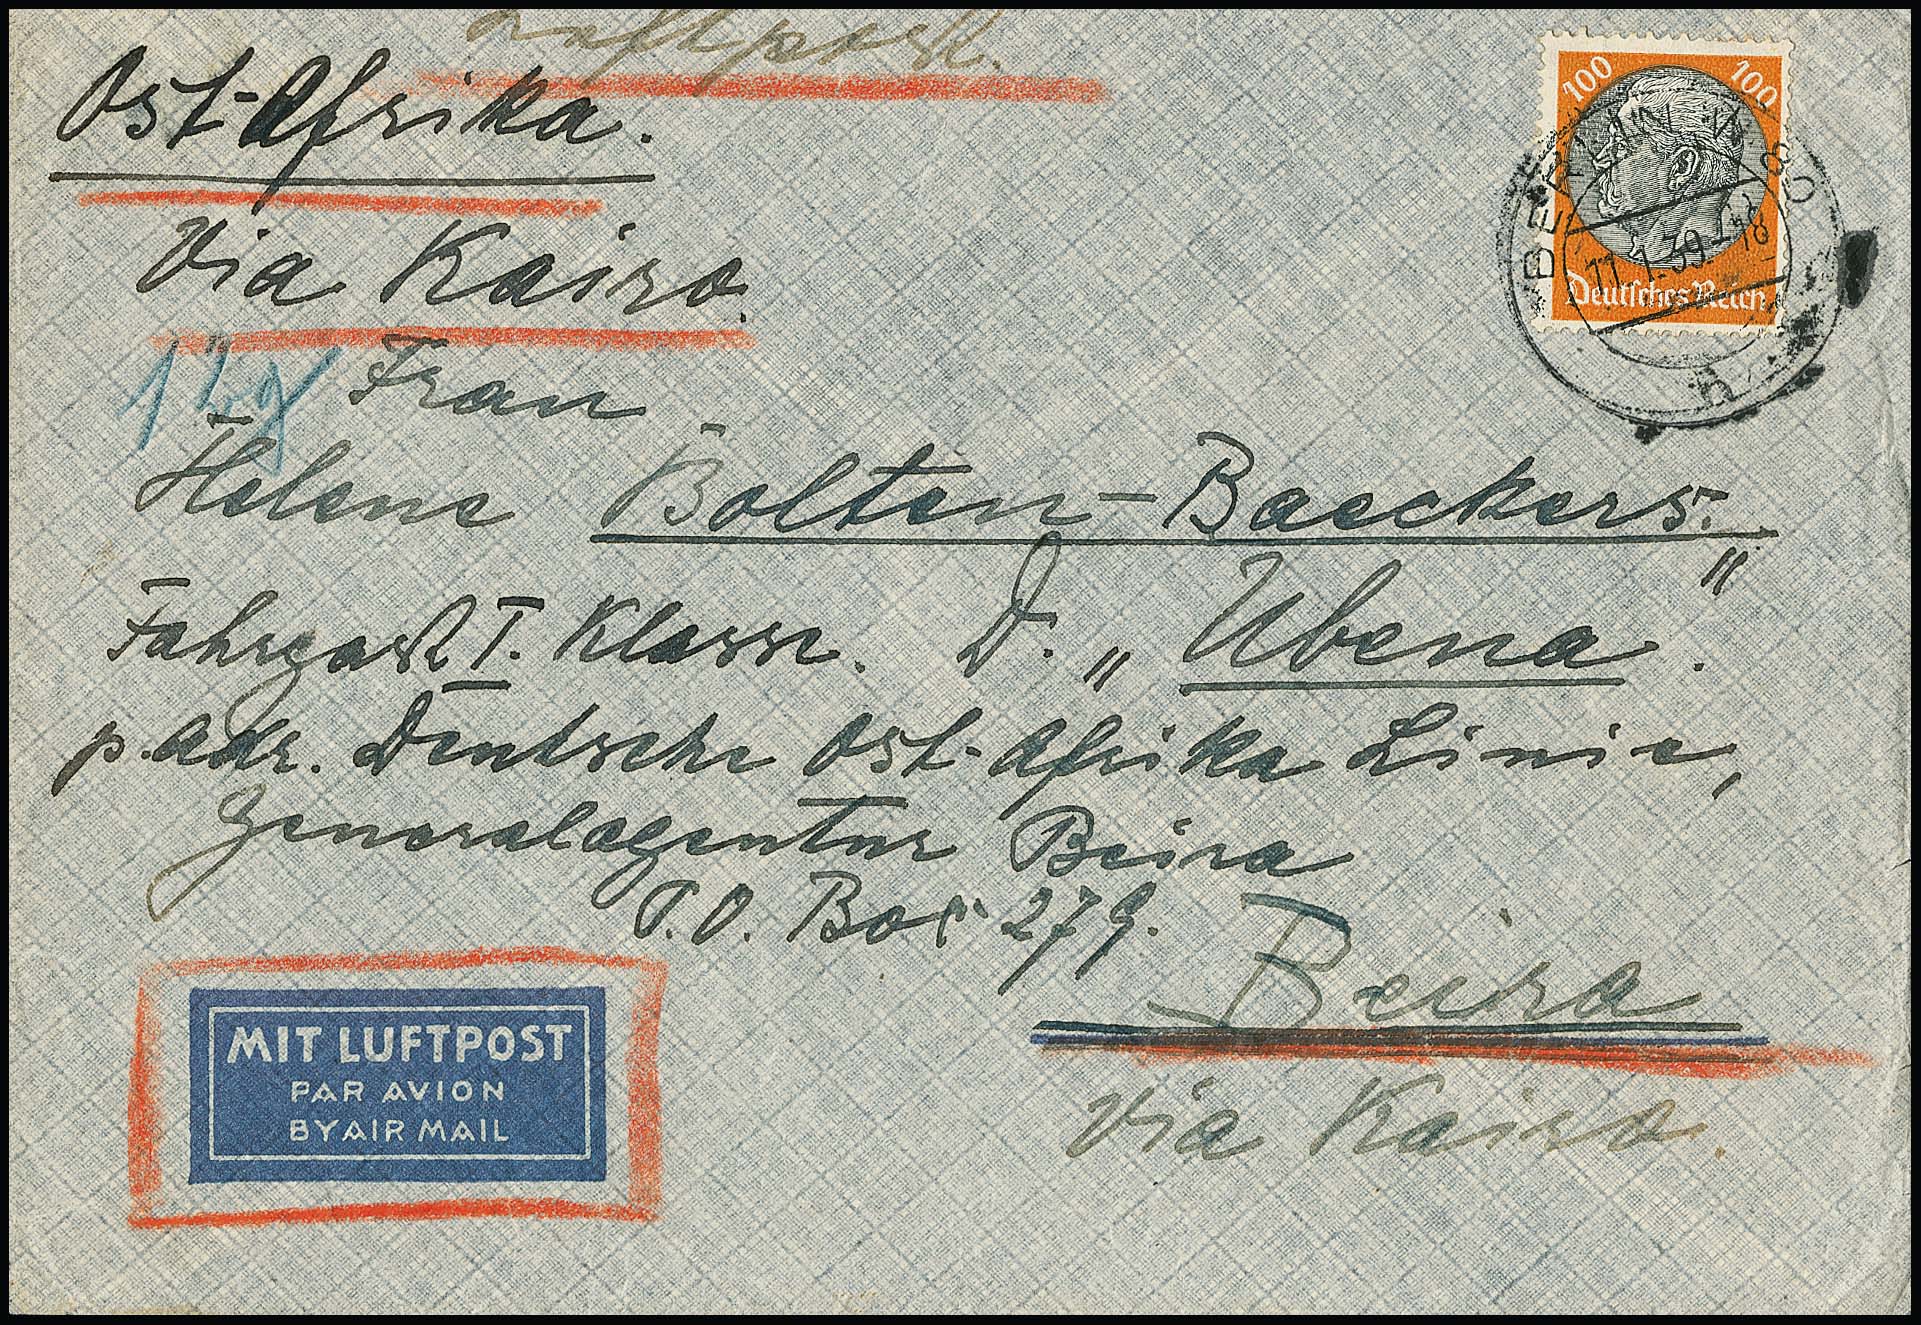 Luftpost.
Ost-Afrika.
Via Kairo.
100 100
Deutsches Reich
BERLIN W 30
11.1.39.-18
Frau
Helene Bolten-Baeckers.
Fahrgast I. Klasse. D. „Ubena".
p. Adr. Deutsche Ost-Afrika Linie,
Generalagentur Beira
P.O. Box 279.
Beira
via Kairo.
MIT LUFTPOST
PAR AVION
BY AIR MAIL